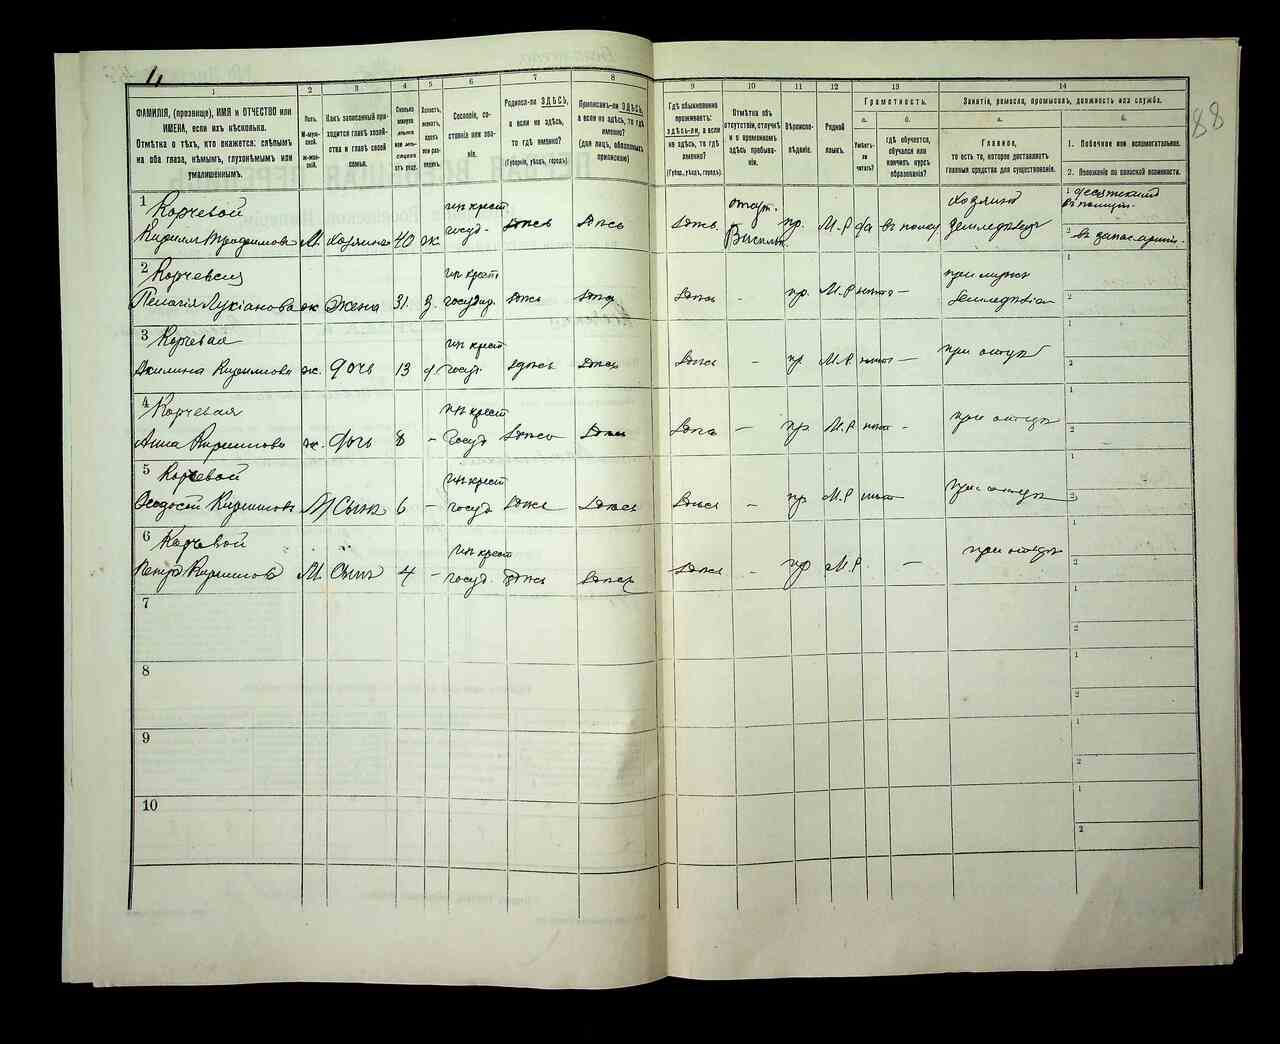 4
88
1
ФАМИЛІЯ, (прозвище), ИМЯ и ОТЧЕСТВО или
ИМЕНА, если ихъ нѣсколько.
Отмѣтка о тѣхъ, кто окажется: слѣпымъ
на оба глаза, нѣмымъ, глухонѣмымъ или
умалишеннымъ.
2
Полъ.
М-муж-
ской.
Ж-жен-
скій.
3
Какъ записанный при-
ходится главѣ хозяй-
ства и главѣ своей
семьи.
4
Сколько
минуло
лѣтъ
или мѣ-
сяцевъ
отъ роду.
5
Холостъ,
женатъ,
вдовъ
или раз-
веденъ.
6
Сословіе, со-
стояніе или зва-
ніе.
7
Родился-ли ЗДѢСЬ,
а если не здѣсь,
то гдѣ именно?
(Губернія, уѣздъ, городъ).
8
Приписанъ-ли ЗДѢСЬ,
а если не здѣсь, то гдѣ
именно?
(для лицъ, обязанныхъ
припискою)
9
Гдѣ обыкновенно
проживаетъ:
здѣсь-ли, а если
не здѣсь, то гдѣ
именно?
(Губер., уѣздъ, городъ).
10
Отмѣтка объ
отсутствіи, отлучкѣ
и о временномъ
здѣсь пребыва-
ніи.
11
Вѣроиспо-
вѣданіе.
12
Родной
языкъ.
13
Грамотность.
а.
Умѣетъ-
ли
читать?
б.
гдѣ обучается,
обучался или
кончилъ курсъ
образованія?
14
Занятіе, ремесло, промыселъ, должность или служба.
а.
Главное,
то есть то, которое доставляетъ
главныя средства для существованія.
б.
1. Побочное или вспомогательное.
2. Положеніе по воинской повинности.
1 Корчевой
Кирилъ Трофимовъ М. Хозяинъ 40 ж
изъ крест
госуд.
здѣсь здѣсь здѣсь
отсут.
пр. М.Р. да въ полку
Хозяинъ
Земледѣлецъ
1 десятскій
2 въ запас арміи.
2 Корчевая
Пелагія Лукіанова ж жена 31. з.
изъ крест
госуд.
здѣсь здѣсь здѣсь - пр. М.Р. нѣтъ -
при мужѣ
Земледѣліе
1
2
3 Корчевая
Акилина Кирилова ж. дочь 13 д
изъ крест
госуд.
здѣсь здѣсь здѣсь - пр М.Р. нѣтъ -
при отцѣ
1
2
4 Корчевая
Анна Кирилова ж. дочь 8 -
изъ крест
госуд
здѣсь здѣсь здѣсь - пр. М.Р. нѣтъ -
при отцѣ
1
2
5 Корчевой
Феодосій Кириловъ М Сынъ 6 -
изъ крест
госуд
здѣсь здѣсь здѣсь - пр М.Р. нѣтъ
при отцѣ
1
2
6 Корчевой
Петръ Кириловъ М. Сынъ 4 -
изъ крест
госуд.
здѣсь здѣсь здѣсь - пр М.Р. -
при отцѣ
1
2
7
1
2
8
1
2
9
1
2
10
1
2